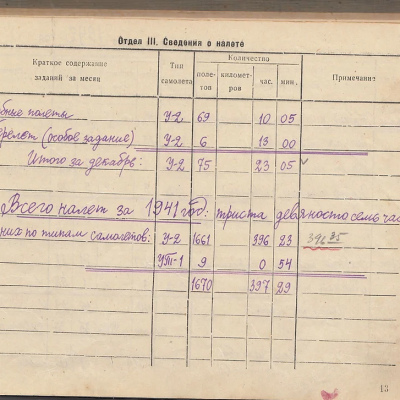 Отдел III. Сведения о налете
Краткое содержание заданий за месяц | Тип самолета | Количество | Примечание
полетов | километров | час. | мин.
бные полеты У-2 69 10 05
ерелет (особое задание) У-2 6 13 00
Итого за декабрь: У-2 75 23 05 v
Всего налет за 1941 год: триста девяносто семь час
них по типам самолетов: У-2 1661 396 23 396 35
УТ-1 9 0 54
1670 397 29
13